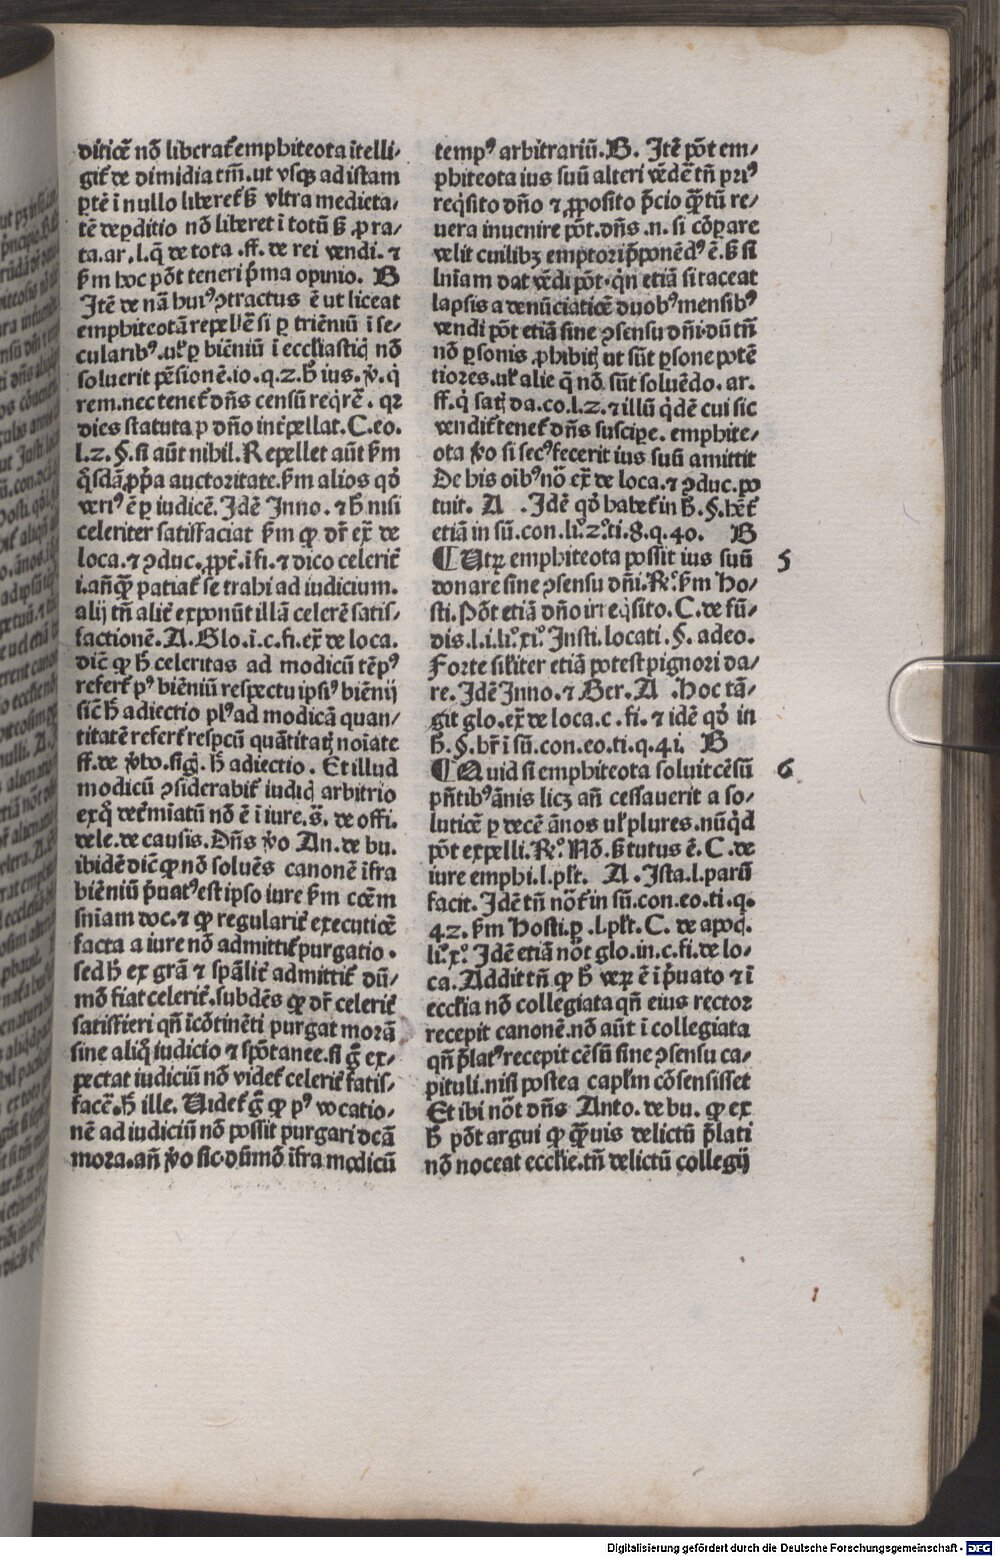 diticē nō liberat᷑ emphiteota ītelli⸗
git᷑ de dimidia tm̄.ut vsqꝫ ad istam
ꝑtē ī nullo liberet᷑ sꝫ vltra medieta⸗
tē deꝑditio nō liberet ī totū sꝫ ꝓ ra⸗
ta.ar.l.q̄ de tota .ff. de rei vendi. ⁊
ẜm hoc pōt teneri p̄ma opinio. B
Itē de nā huiꝰ ꝯtractus ē ut liceat
emphiteotā repellē si ꝑ trieniū ī se⸗
cularibꝰ.ul̓ ꝑ bieniū ī ecclīastiq̇ nō
soluerit pēsionē.io.q.2.h̄ ius.ꝟ.q̇
rem.nec tenet᷑ dn̄s censū req̇rē. qꝛ
dies statuta ꝑ dn̄o int̓pellat.C.eo.
l.2.§.si aūt nihil.Repellet aūt ẜm
q̇sdā ꝓpͥa auctoritate.ẜm alios qḋ
veriꝰ ē ꝑ iudicē.Idē Inno. ⁊ h̄ nisi
celeriter satisfaciat ẜm ꝙ dr̄ ex̄ de
loca.⁊ ꝯduc.ꝓpt̓.ī fi.⁊ dico celerit̓
i.an̄q̄ꝫ patiat᷑ se trahi ad iudicium.
alij tn̄ alit̓ exponūt illā celerē satis⸗
factionē.A.Glo.ī.c.fi.ex̄ de loca.
dic̄ ꝙ h̄ celeritas ad modicū tēpꝰ
refert᷑ pꝰ bieniū respectu ipsiꝰ bienij
sic̄ h̄ adiectio plꝰ ad modicā quan⸗
titatē refert᷑ respcū quātitatꝭ noīate
ff.de ꝟbo.sig̓. h̄ adiectio. Et illud
modicū ꝯsiderabit᷑ iudiq̇ arbitrio
exq̊ det᷑miatū nō ē ī iure.s̄. de offi.
dele.de causis.Dn̄s ꝟo An.de bu.
ibidē dic̄ ꝙ nō soluēs canonē īfra
bieniū p̄uat᷑ est ipso iure ẜm cōem
sn̄iam doc.⁊ ꝙ regularit̓ executicē
facta a iure nō admittit᷑ purgatio.
sed h̄ ex grā ⁊ spālit̓ admittit᷑ dū⸗
mō fiat celerit̓.subdēs ꝙ dr̄ celerit̓
satisfieri qn̄ īcōtinēti purgat morā
sine aliq̊ iudicio ⁊ spōtanee.si g̊ ex⸗
pectat iudiciū nō videt᷑ celerit̓ satis⸗
facē.h̄ ille. Uidet᷑ g̊ ꝙ pꝰ vocatio⸗
nē ad iudiciū nō possit purgari dcā
mora.an̄ ꝟo sic.dūmō īfra modicū
tempꝰ arbitrariū.B. Itē pōt em⸗
phiteota ius suū alteri vēdē tn̄ priꝰ
reqͥsito dn̄o ⁊ ꝓposito p̄cio q̄tū re⸗
uera inuenire pōt.dn̄s .n. si cōꝑare
velit cuilibꝫ emptori p̄ponēdꝰ ē.sꝫ si
lnīam dat vēdi pōt.qn̄ etiā si taceat
lapsis a denūciatiōe duobꝰ mensibꝰ
vendi pōt etiā sine ꝯsensu dn̄i.dū tn̄
nō ꝑsonis ꝓhibitꝭ ut sūt ꝑsone potē
tiores.ul̓ alie q̄ nō sūt soluēdo. ar.
ff.q̇ satꝭ da.co.l.2.⁊ illū qͥdē cui sic
vendit᷑ tenet᷑ dn̄s suscipe. emphite⸗
ota ꝟo si secꝰ fecerit ius suū amittit
De his oībꝰ nō ex̄ de loca.⁊ ꝯduc.po
tuit. A .Idē qḋ habet᷑ in h̄.§.hēt᷑
etiā in sū.con.li͛.2͛.ti.8.q.40. B
¶Utꝝ emphiteota possit ius suū 5
donare sine ꝯsensu dn̄i.Rͦ.ẜm Ho⸗
sti.Pōt etiā dn̄o irreqͥsito.C.de fū⸗
dis.l.i.li͛.xi͛.Insti.locati.§.adeo.
Forte sil̓iter etiā potest pignori da⸗
re.Idē Inno.⁊ Ber.A .Hoc tā⸗
git glo.ex̄ de loca.c.fi.⁊ idē qḋ in
h̄.§.hr̄ ī sū.con.eo.ti.q.41. B
¶Quid si emphiteota soluit cēsū 6
pn̄tibꝰ ānis licꝫ an̄ cessauerit a so⸗
luticē ꝑ decē ānos ul̓ plures.nūqͥd
pōt expelli.Rͦ.Nō.sꝫ tutus ē.C.de
iure emphi.l.pl̓t. A.Ista.l.parū
facit.Idē tn̄ nōt᷑ in sū.con.eo.ti.q.
42.ẜm Hosti.ꝑ .l.pl̓t.C. de apoq.
li͛.x͛.Idē etiā nōt glo.in.c.fi.de lo⸗
ca.Addit tn̄ ꝙ h̄ veꝝ ē ī p̄uato ⁊ ī
ecclīa nō collegiata qn̄ eius rector
recepit canonē.nō aūt ī collegiata
qn̄ p̄latꝰ recepit cēsū sine ꝯsensu ca⸗
pituli.nisi postea capl̓m cōsensisset
Et ibi nōt dn̄s Anto.de bu.ꝙ ex
h̄ pōt argui ꝙ q̄ꝫuis delictū p̄lati
nō noceat ecclīe.tn̄ delictū collegij
Digitalisierung gefördert durch die Deutsche Forschungsgemeinschaft - DFG